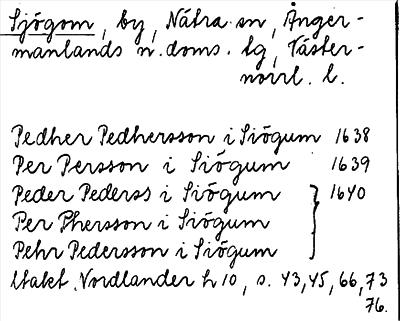 Sjögom, by, Nätra sn, Ånger-
manlands n. doms. lg, Väster-
norrl. l.
Pedher Pedhersson i Siögum 1638
Per Persson i Siögum 1639
Peder Pederss i Siögum } 1640
Per Phersson i Siögum
Pehr Pedersson i Siögum
Utakt. Nordlander h 10, s. 43, 45, 66, 73
76.